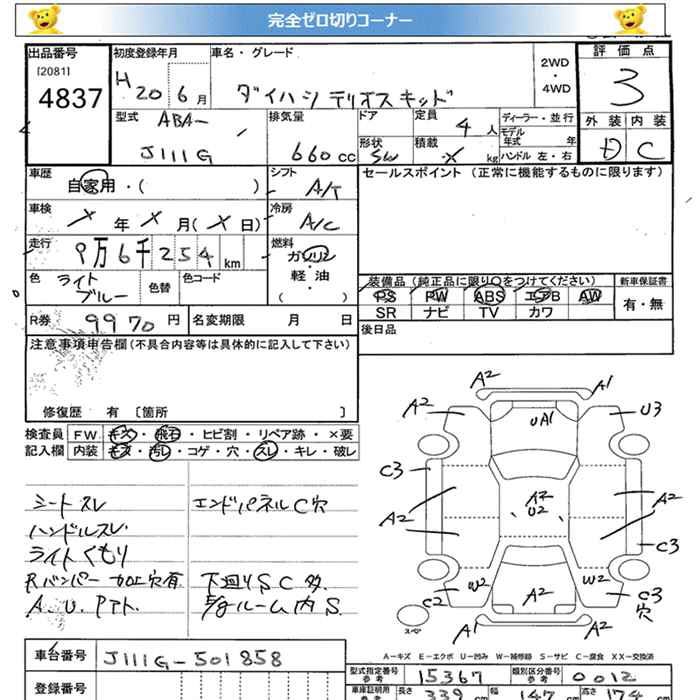 完全ゼロ切りコーナー
出品番号 初度登録年月 車名・グレード 評価点
[2081] 2WD
4837 H 20 6月 ダイハツ テリオスキッド ・ 3
4WD
型式 ABA- 排気量 ドア 定員 4人 ディーラー・並行 外装 内装
J111G 660cc 形状 SW 積載 ・X kg モデル年式 年 D C
ハンドル 左・右
車歴 自家用・( ) シフト A/T セールスポイント (正常に機能するものに限ります)
車検 X年 X月(X日) 冷房 A/C
走行 9万6千254km 燃料 ガソリン
軽・油
( )
色 ライトブルー 色替 色コード 装備品 (純正品に限り○をつけてください) 新車保証書
PS PW ABS エアB AW 有・無
SR ナビ TV カワ
R券 9970円 名変期限 月 日 後日品
注意事項申告欄(不具合内容等は具体的に記入して下さい)
修復歴 有 〔箇所 〕
検査員 FW キズ・飛石・ヒビ割・リペア跡・×要
記入欄 内装 キズ・汚レ・コゲ・穴・スレ・キレ・破レ
シートスレ エンドパネルC穴
ハンドルスレ
ライトくもり
Rバンパー加工穴有 下廻りSC多
A.U.Pテト. ルーム内S.
A2 A1
A2 UA1 U3
C3 A2
A2 U2 A2
C3
W2 W2
C2 A2 C3
穴
A1 A2
スペア
A-キズ E-エクボ U-凹み W-補修跡 S-サビ C-腐食 XX-交換済
車台番号 J111G-501858
型式指定番号 参考 15367 類別区分番号 参考 0012
登録番号 車庫証明用 参考 長さ 339 幅 147 高さ 174 cm